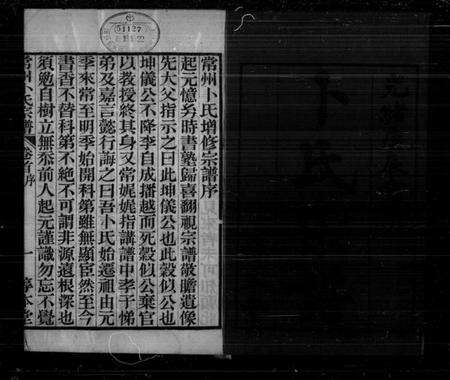 常州卜氏增修宗譜序
起元憶㓜時書塾歸喜翻視宗譜敬瞻遺像
先大父指示之曰此坤儀公也此穀似公也
坤儀公不降李自成播越而死穀似公棄官
以教授終其身又常娓娓指講譜中孝于悌
弟及嘉言懿行誨之曰吾卜氏始遷祖由元
季來常至明季始開科第雖無顯宦然至今
書香不替科第不絶不可謂非源遠根深也
須勉自樹立無忝前人起元謹識勿忘不覺
常州卜氏宗譜
卷首序
一
惇本堂
51127
卜氏